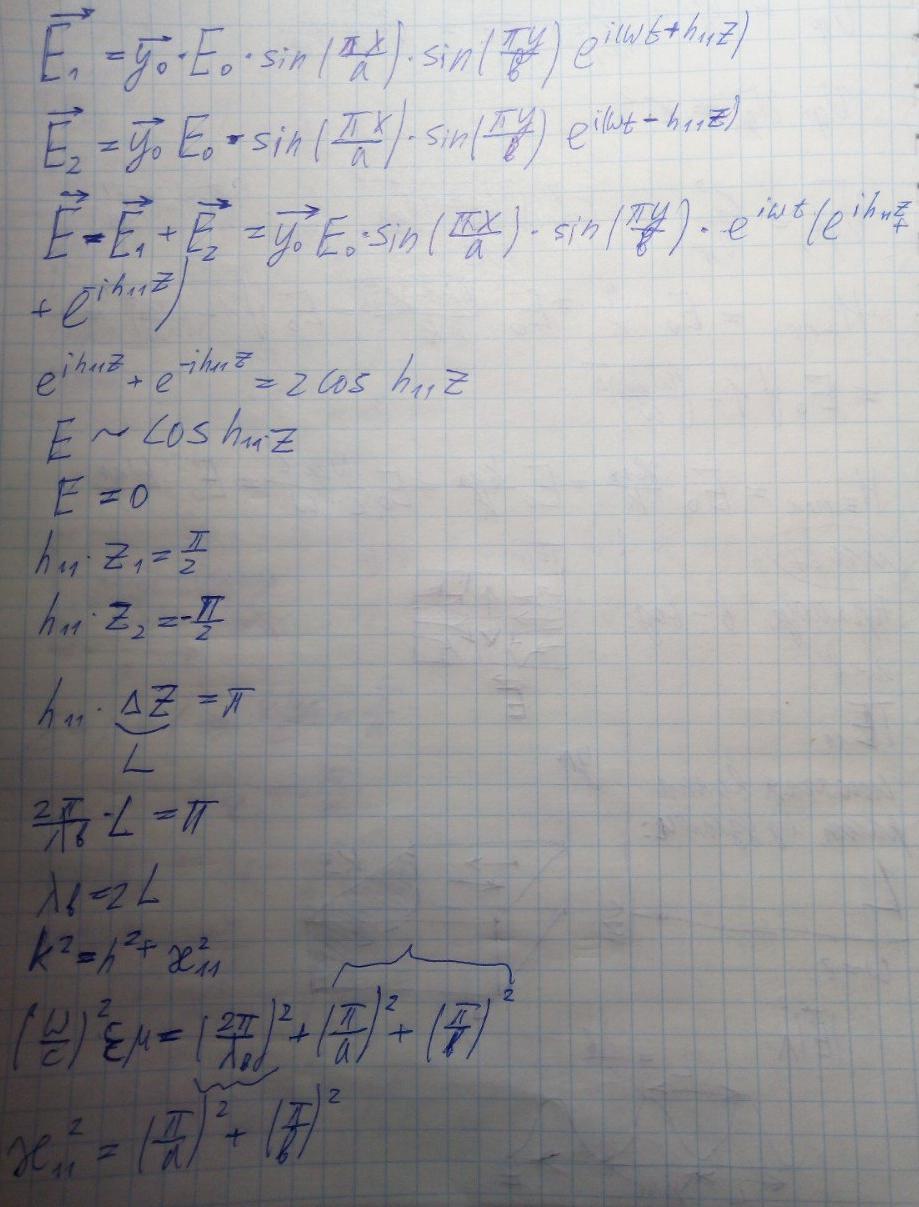 E⃗₁ = y⃗₀ · E₀ · sin(πx/a) · sin(πy/в) e^{i(ωt+h₁₁z)}
E⃗₂ = y⃗₀ E₀ · sin(πx/a) · sin(πy/в) e^{i(ωt-h₁₁z)}
E⃗ = E⃗₁ + E⃗₂ = y⃗₀ E₀ · sin(πx/a) · sin(πy/в) · e^{iωt} (e^{ih₁₁z} +
+ e^{-ih₁₁z})
e^{ih₁₁z} + e^{-ih₁₁z} = 2 cos h₁₁z
E ~ cos h₁₁z
E = 0
h₁₁ · z₁ = π/2
h₁₁ · z₂ = -π/2
h₁₁ · Δz = π
L
2π/λв · L = π
λв = 2L
k² = h² + æ²₁₁
(ω/c)² εμ = (2π/λв)² + (π/a)² + (π/в)²
æ₁₁² = (π/a)² + (π/в)²